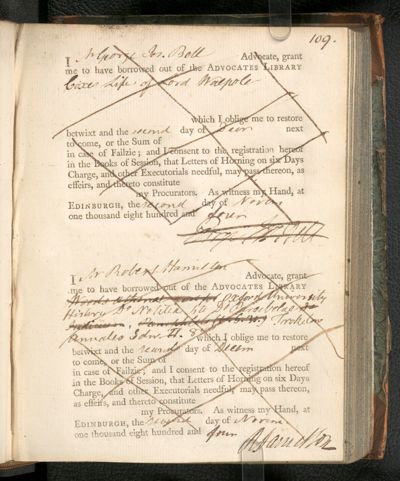 109.
I Mr George Jos. Bell Advocate, grant
me to have borrowed out of the ADVOCATES LIBRARY
Coxes Life of Lord Walpole
which I oblige me to restore
betwixt and the second day of Decr next
to come, or the Sum of
in case of Failzie; and I consent to the registration hereof
in the Books of Session, that Letters of Horning on six Days
Charge, and other Executorials needful, may pass thereon, as
effeirs, and thereto constitute
my Procurators. As witness my Hand, at
EDINBURGH, the second day of Novem
one thousand eight hundred and four
Bell
I Mr Robert Hamilton Advocate, grant
me to have borrowed out of the ADVOCATES LIBRARY
Oxford University
History
Annales
which I oblige me to restore
betwixt and the second day of Decem next
to come, or the Sum of
in case of Failzie; and I consent to the registration hereof
in the Books of Session, that Letters of Horning on six Days
Charge, and other Executorials needful, may pass thereon,
as effeirs, and thereto constitute
my Procurators. As witness my Hand, at
EDINBURGH, the second day of Novem
one thousand eight hundred and four
R Hamilton